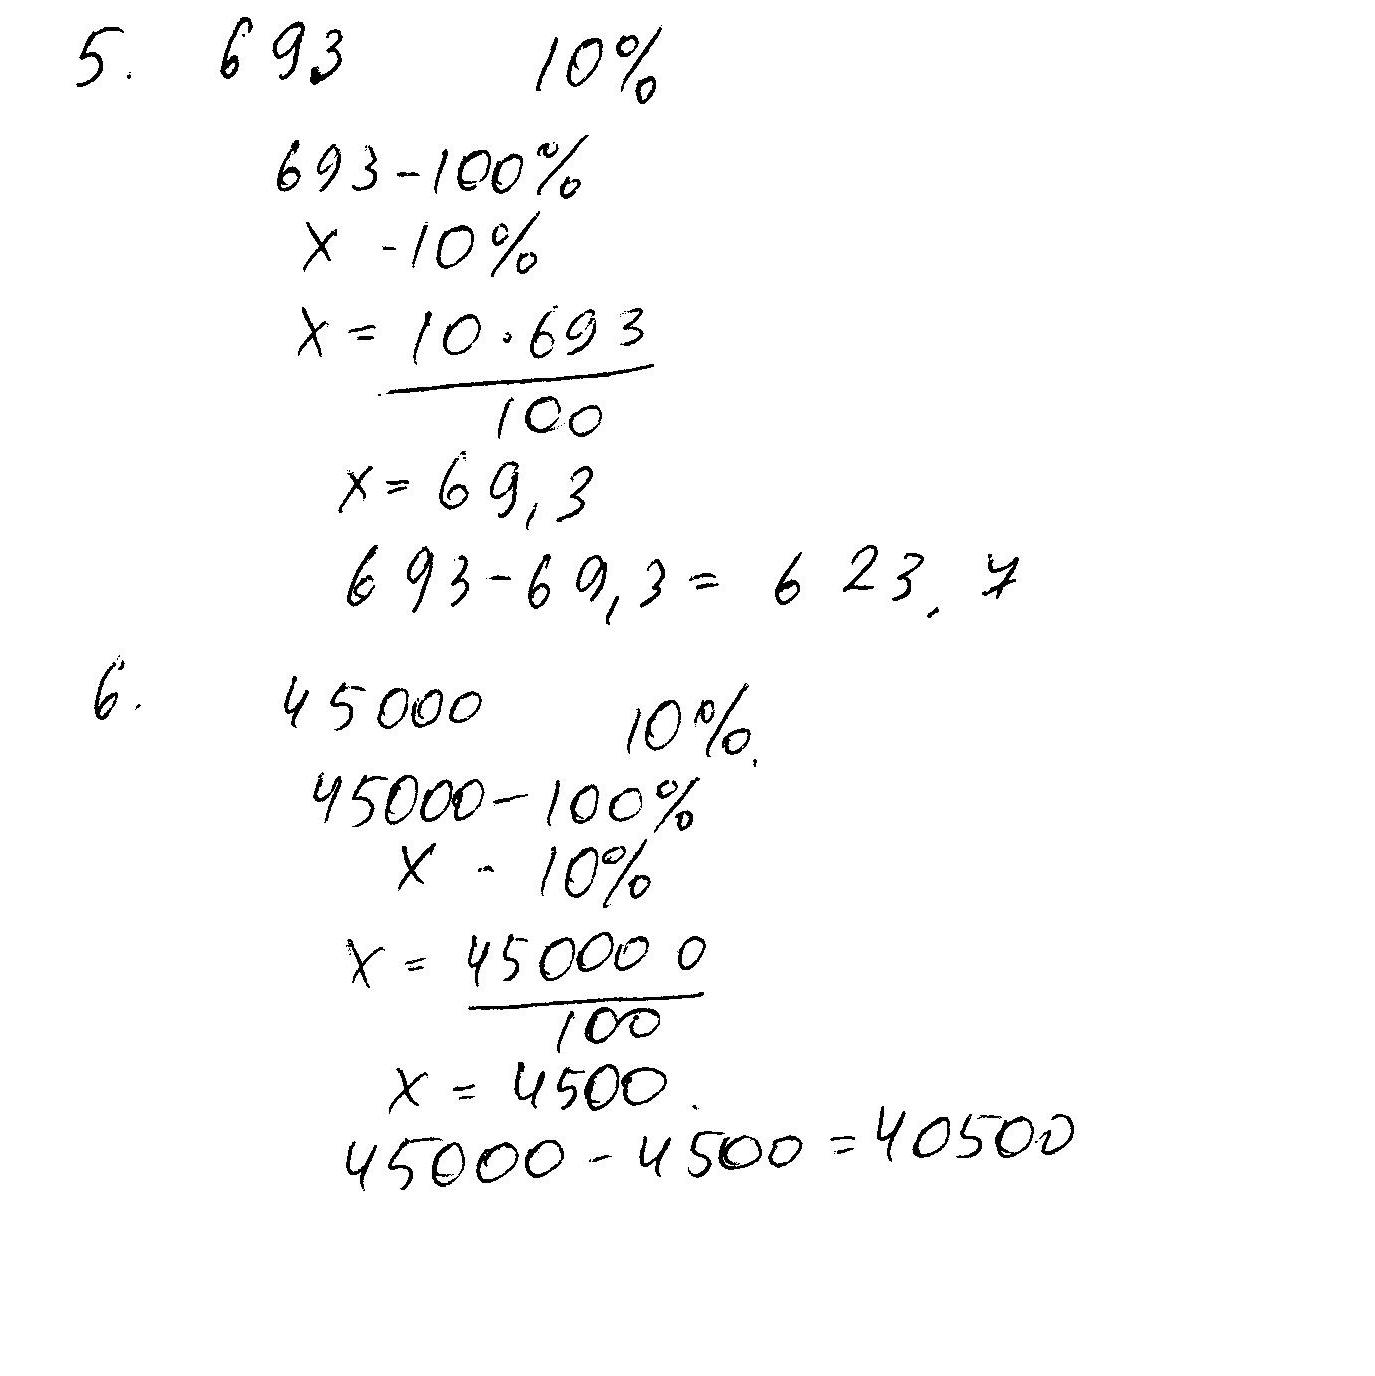 5. 693 10%
693-100%
x -10%
x = 10·693
100
x = 69,3
693-69,3 = 623,7
6. 45000 10%.
45000-100%
x - 10%
x = 450000
100
x = 4500.
45000-4500=40500